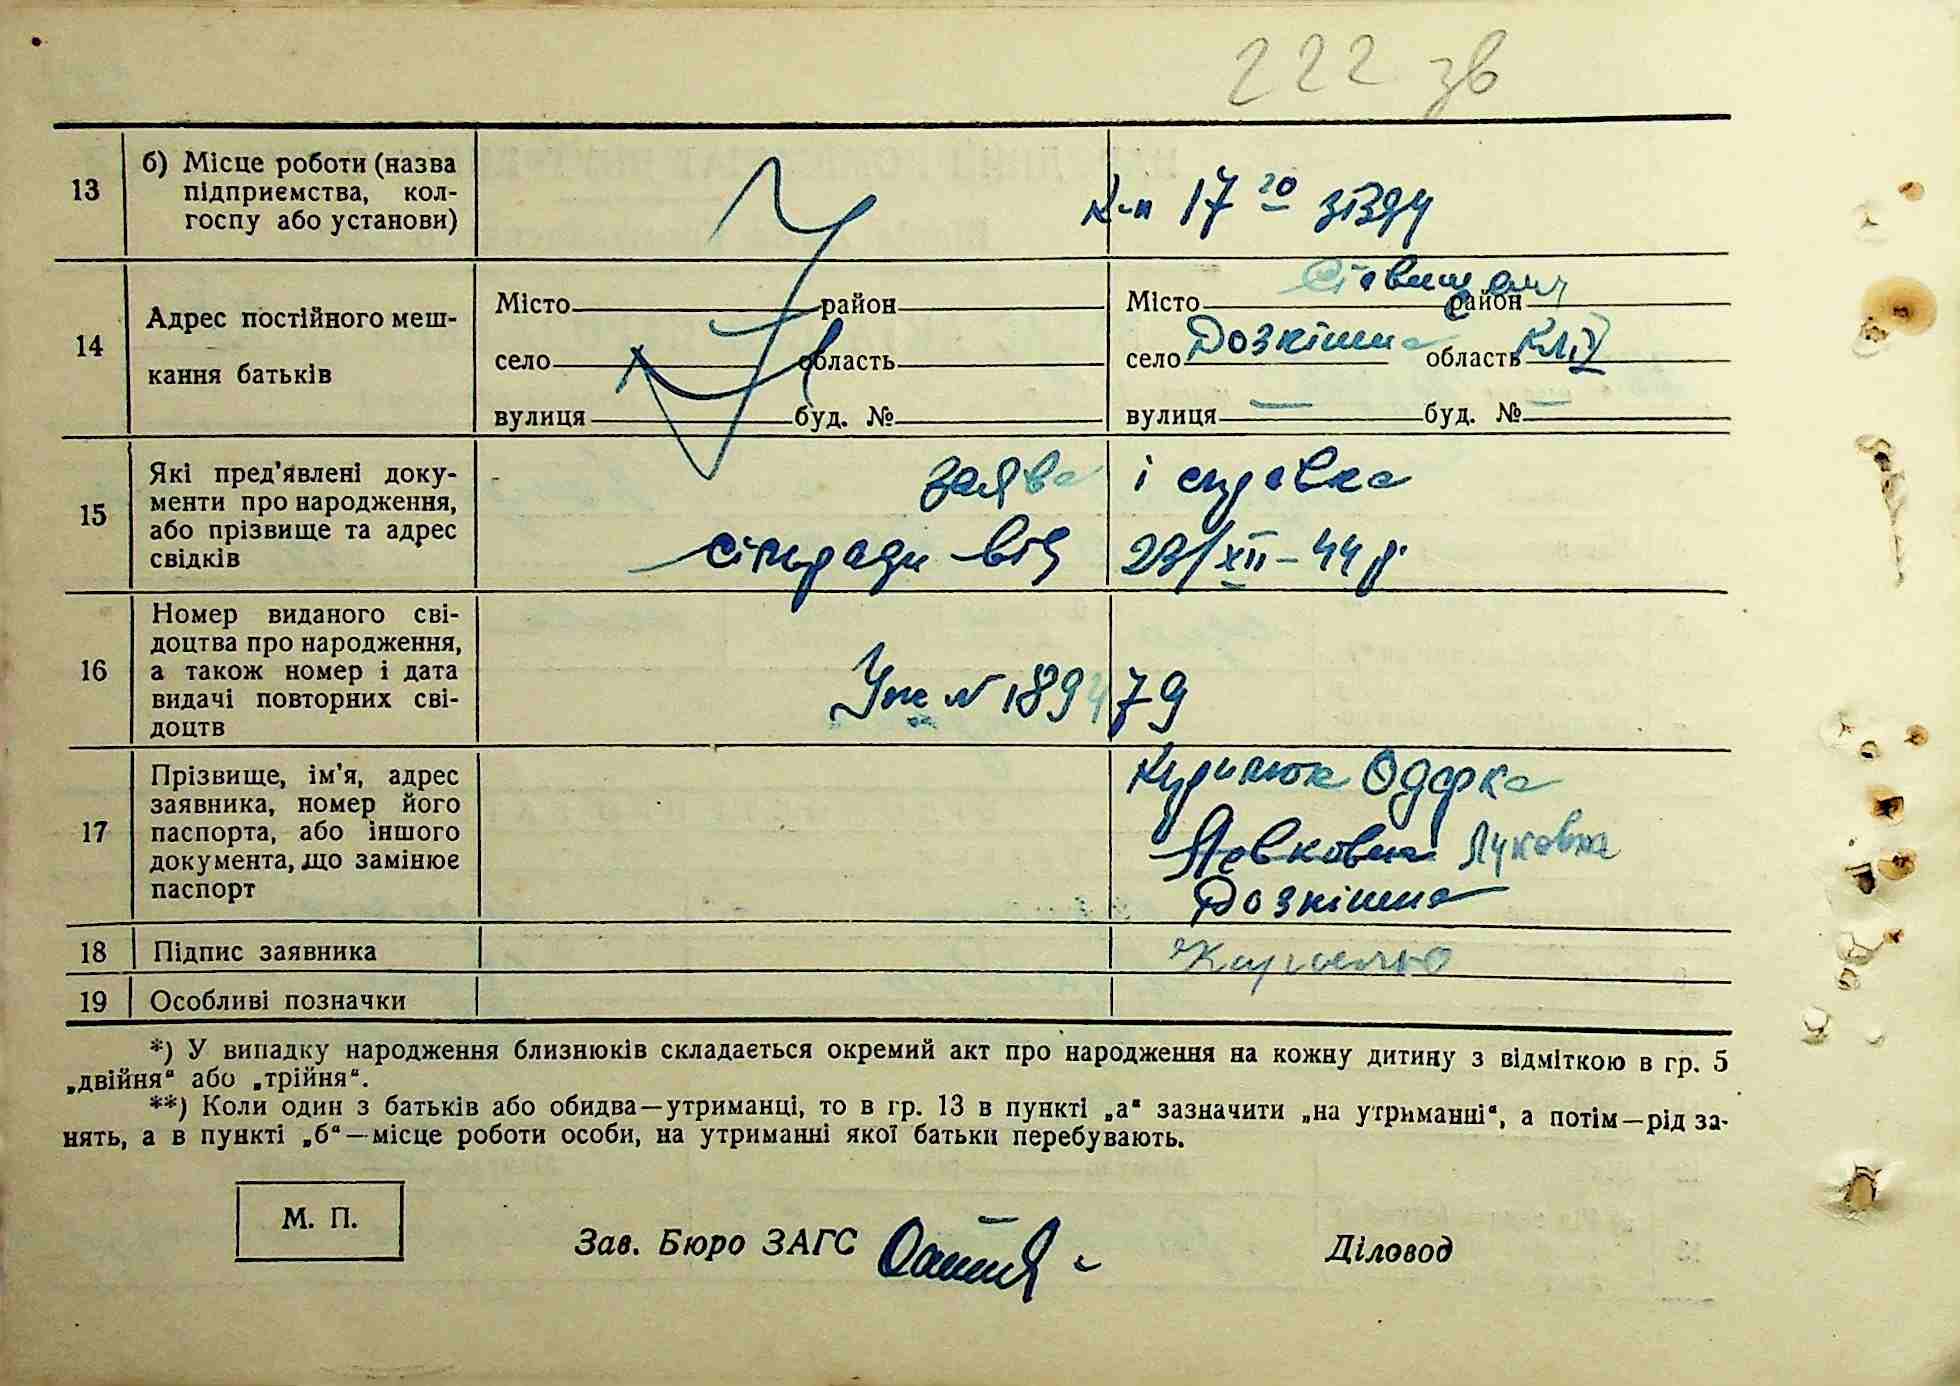 222 зв
13
б) Місце роботи (назва
підприємства, кол-
госпу або установи)
к-п 17 го зїзду
14
Адрес постійного меш-
кання батьків
Місто район
село область
вулиця буд. №
Місто Ставищен район
село Розкішна область Київ
вулиця — буд. № —
15
Які пред’явлені доку-
менти про народження,
або прізвище та адрес
свідків
заява і справка
сільради від 29/XII-44 р.
16
Номер виданого сві-
доцтва про народження,
а також номер і дата
видачі повторних сві-
доцтв
Уж № 189479
17
Прізвище, ім’я, адрес
заявника, номер його
паспорта, або іншого
документа, що замінює
паспорт
Курилюк Одарка
Явковна Луковна
Розкішна
18
Підпис заявника
19
Особливі позначки
*) У випадку народження близнюків складається окремий акт про народження на кожну дитину з відміткою в гр. 5
„двійня“ або „трійня“.
**) Коли один з батьків або обидва—утриманці, то в гр. 13 в пункті „а“ зазначити „на утриманні“, а потім—рід за-
нять, а в пункті „б“—місце роботи особи, на утриманні якої батьки перебувають.
М. П.
Зав. Бюро ЗАГС
Діловод